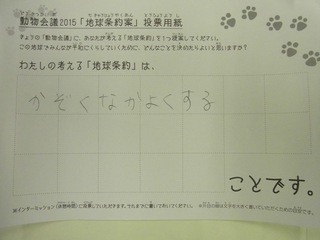 動物会議2015「地球条約案」投票用紙
きょうの「動物会議」に、あなたが考える「地球条約」を1つ提案してください。
この地球でみんなが平和にくらしていくために、どんなことを決めたらよいと思いますか?
わたしの考える「地球条約」は、
かぞくなかよくする
ことです。